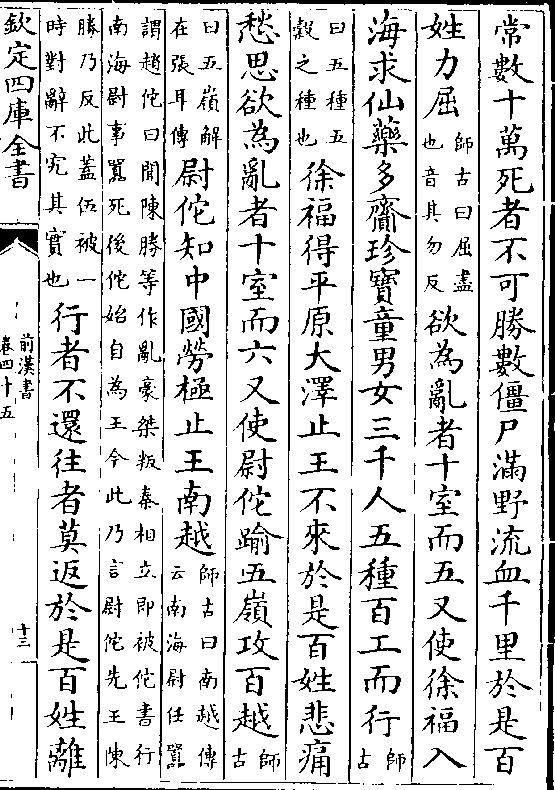 常數十萬死者不可勝數僵尸滿野流血千里於是百
姓力屈師古曰屈盡也音其勿反欲為亂者十室而五又使徐福入
海求仙藥多齎珍寶童男女三千人五種百工而行師古
曰五種五穀之種也徐福得平原大澤止王不來於是百姓悲痛
愁思欲為亂者十室而六又使尉佗踰五嶺攻百越師古
曰五嶺解在張耳傳尉佗知中國勞極止王南越師古曰南越傳云南海尉任囂
謂趙佗曰聞陳勝等作亂豪桀叛秦相立即被佗書行南海尉事囂死後佗始自為王今此乃言尉佗先王陳
勝乃反此蓋伍被一時對辭不究其實也行者不還往者莫返於是百姓離
欽定四庫全書
前漢書
卷四十五
十三